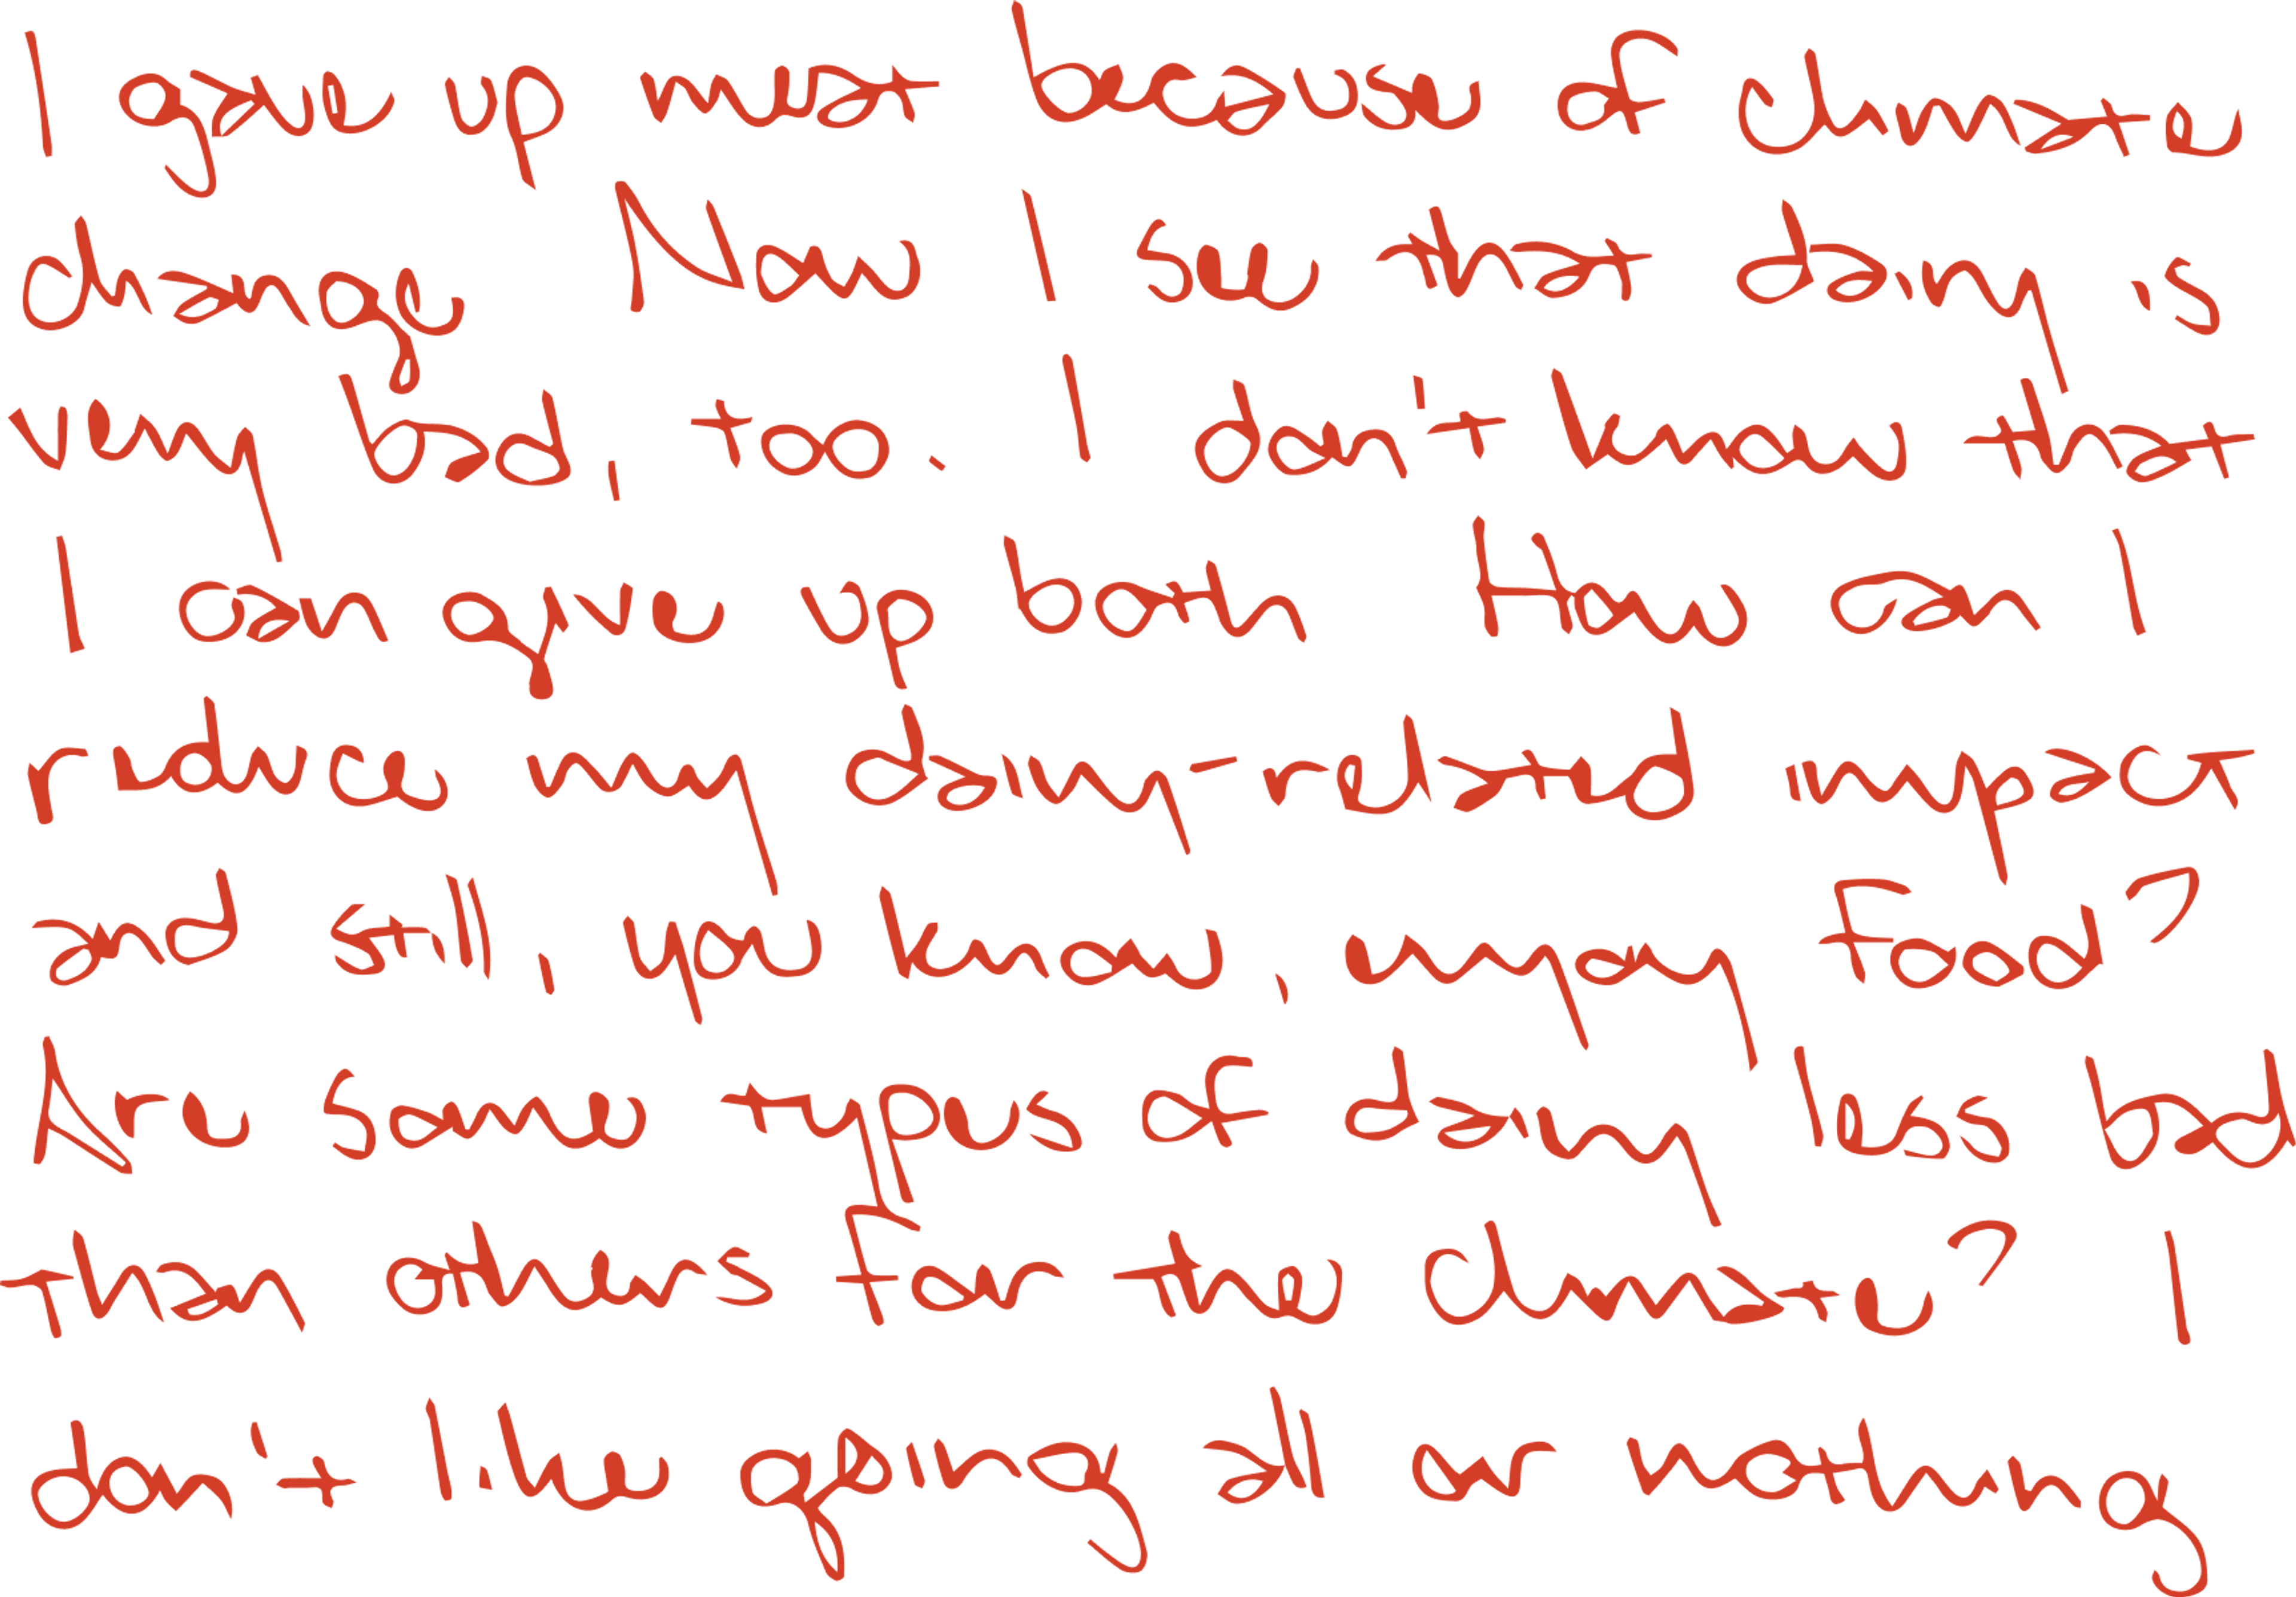 I gave up meat because of climate
change. Now I see that dairy is
very bad, too. I don't know that
I can give up both. How can I
reduce my dairy-related impact
and still, you know, enjoy food?
Are some types of dairy less bad
than others for the climate? I
don't like going all or nothing